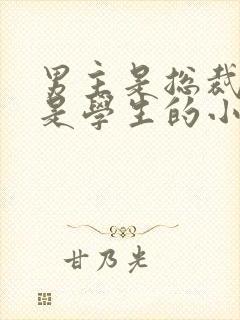 男主是总裁
是學生的小
甘乃光